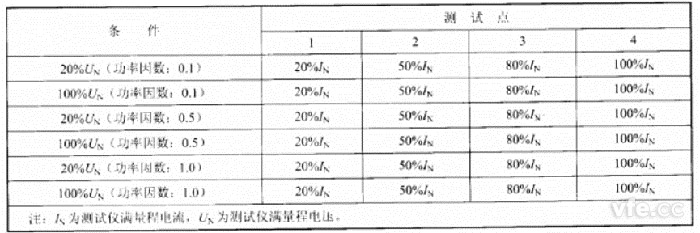 条 件 测 试 点
1 2 3 4
20%UN（功率因数：0.1） 20%IN 50%IN 80%IN 100%IN
100%UN（功率因数：0.1） 20%IN 50%IN 80%IN 100%IN
20%UN（功率因数：0.5） 20%IN 50%IN 80%IN 100%IN
100%UN（功率因数：0.5） 20%IN 50%IN 80%IN 100%IN
20%UN（功率因数：1.0） 20%IN 50%IN 80%IN 100%IN
100%UN（功率因数：1.0） 20%IN 50%IN 80%IN 100%IN
注：IN为测试仪满量程电流，UN为测试仪满量程电压。
vfe.cc